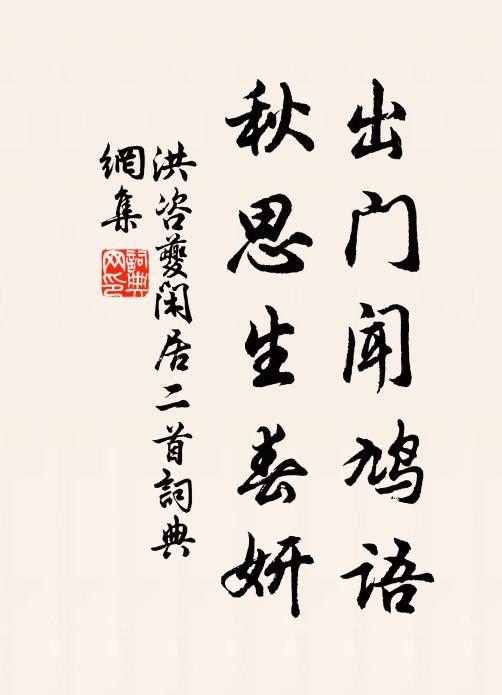 出门闻鸠语
秋思生春妍
洪咨夔闲居二首詞典
網集
詞典
网印